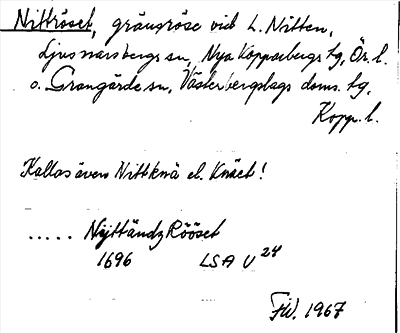 Nittröset, gränsröse vid L. Nitten,
Ljusnarsbergs sn, Nya Kopparbergs tg, Ör. l.
o. Grangärde sn, Västerbergslags doms. tg,
Kopp. l.
Kallas även Nittknä el. Knäet!
..... Nyttändz Rööset
1696 LSA U 24
FW. 1967